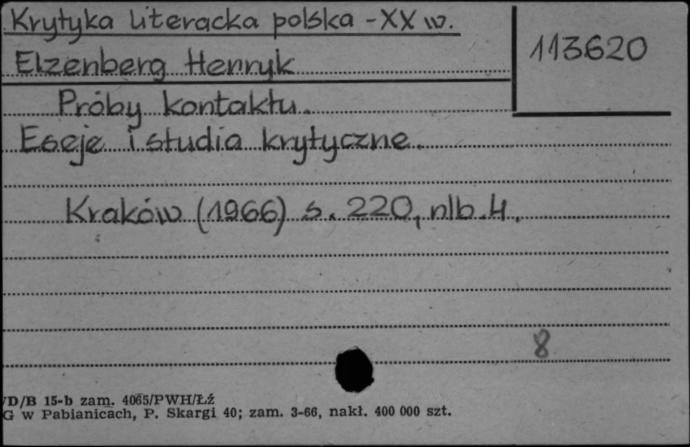 Krytyka literacka polska - XX w.
113620
Elzenberg Henryk
Próby kontaktu.
Eseje i studia krytyczne.
Kraków (1966) s. 220, nlb. 4.
8
/D/B 15-b zam. 4065/PWH/Łź
G w Pabianicach, P. Skargi 40; zam. 3-66, nakł. 400 000 szt.